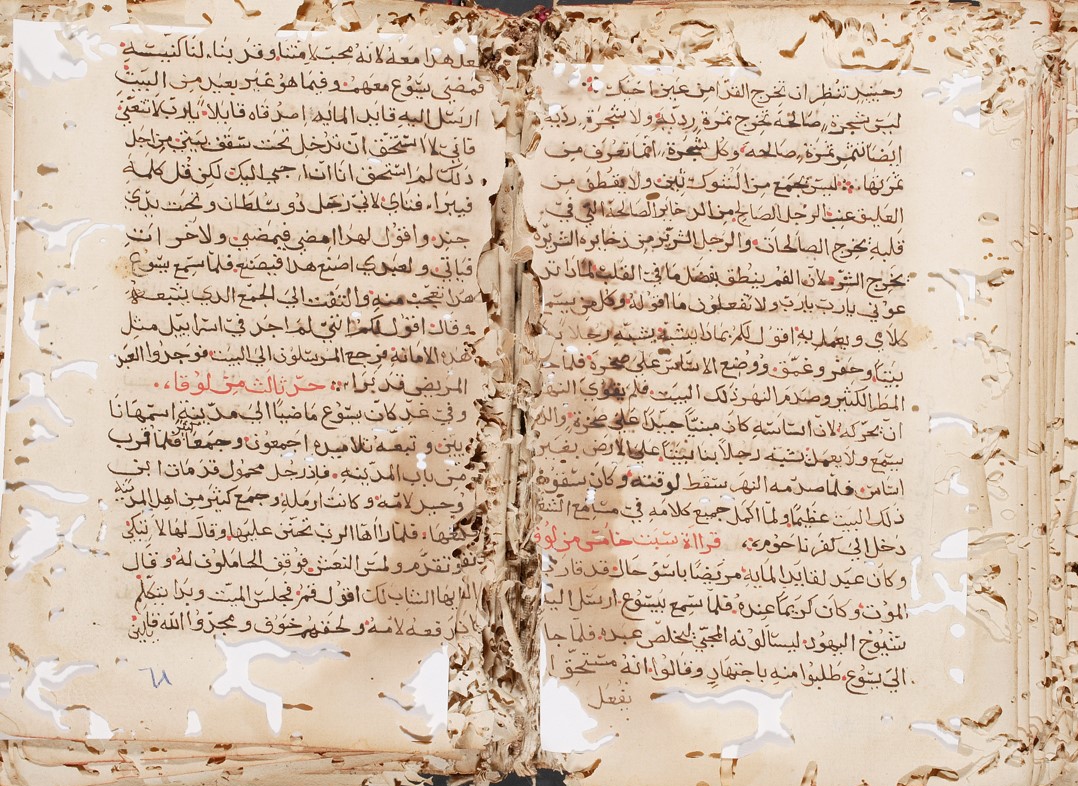 وحينيذ تنظر ان تخرج القذا من عين اخيك
ليس شجرة صالحة تخرج ثمرة ردية ولا شجرة ردية
ايضا تثمر ثمرة صالحه وكل شجرة انما تعرف من
ثمرتها ليس يجمع من الشوك تين ولا يقطف من
العليق عنب الرجل الصالح من الدخاير الصالحة التي في
قلبه يخرج الصالحات والرجل الشرير من دخايره الشريرة
يخرج الشر لان الفم ينطق بفضل ما في القلب لماذا تد
عوني يارب يارب ولا تفعلون ما اقوله وكل من يسمع
كلامي ويعمل به اقول لكم بماذا يشبه يشبه رجلا بنا
بيتا وحفر وعمق ووضع الاساس على صخرة فلما جا
المطر الكثير وصدم النهر ذلك البيت فلم يقوى النهر
ان يحركه لان اساسه كان مبنيا جيدا على صخرة والذي
يسمع ولا يعمل يشبه رجلا بنا بيتا على الارض بغير
اساس فلما صدمه النهر سقط لوقته وكان سقوط
ذلك البيت عظيما ولما اكمل جميع كلامه في مسامع الشعب
دخل الي كفرناحوم قراة سبت خامس من لوقا
وكان عبد لقايد المايه مريضا باسو حال قد قارب
الموت وكان كريما عنده فلما سمع بيسوع ارسل اليه
شيوخ اليهود ليسالونه المجي ليخلص عبده فلما جا
الي يسوع طلبوا منه باجتهاد وقالوا انه مستحق ا
يفعل
يفعل هدا معه لانه محب لامتنا وقد بنا لنا كنيسة
فمضي يسوع معهم وفيما هو غير بعيد من البيت
ارسل اليه قايد المايه اصدقاه قايلا يارب لا تتعني
فاني لا استحق ان تدخل تحت سقف بيتي من اجل
ذلك لم استحق انا ان اجي اليك لكن قل كلمة
فيبرا فتاي لاني رجل دو سلطان وتحت يدي
جند واقول لهدا امضي فيمضي ولاخر ات
فياتي ولعبدي اصنع هدا فيصنع فلما سمع يسوع
هدا تعجب منه والتفت الي الجمع الدي يتبعه
وقال اقول لكم انني لم اجد في اسراييل مثل
هده الامانه فرجع المرسلون الي البيت فوجدوا العبد
المريض قد برا حد ثالث من لوقا
وفي غد كان يسوع ماضيا الى مدينه اسمها نا
يين وتبعه تلاميده اجمعون وجمعا كثير فلما قرب
من باب المدينه فادا رجل محمول قد مات ابن
وحيد لامه وكانت ارمله وجمع كثير من اهل المدينه
معها فلما راها الرب تحنن عليها وقال لها لا تبكي
وتقدم ولمس النعش فوقف الحاملون له وقال
ايها الشاب لك اقول قم فجلس الميت وبدا يتكلم
فدفعه لامه ولحقهم خوف ومجدوا الله قايلين
٦٨